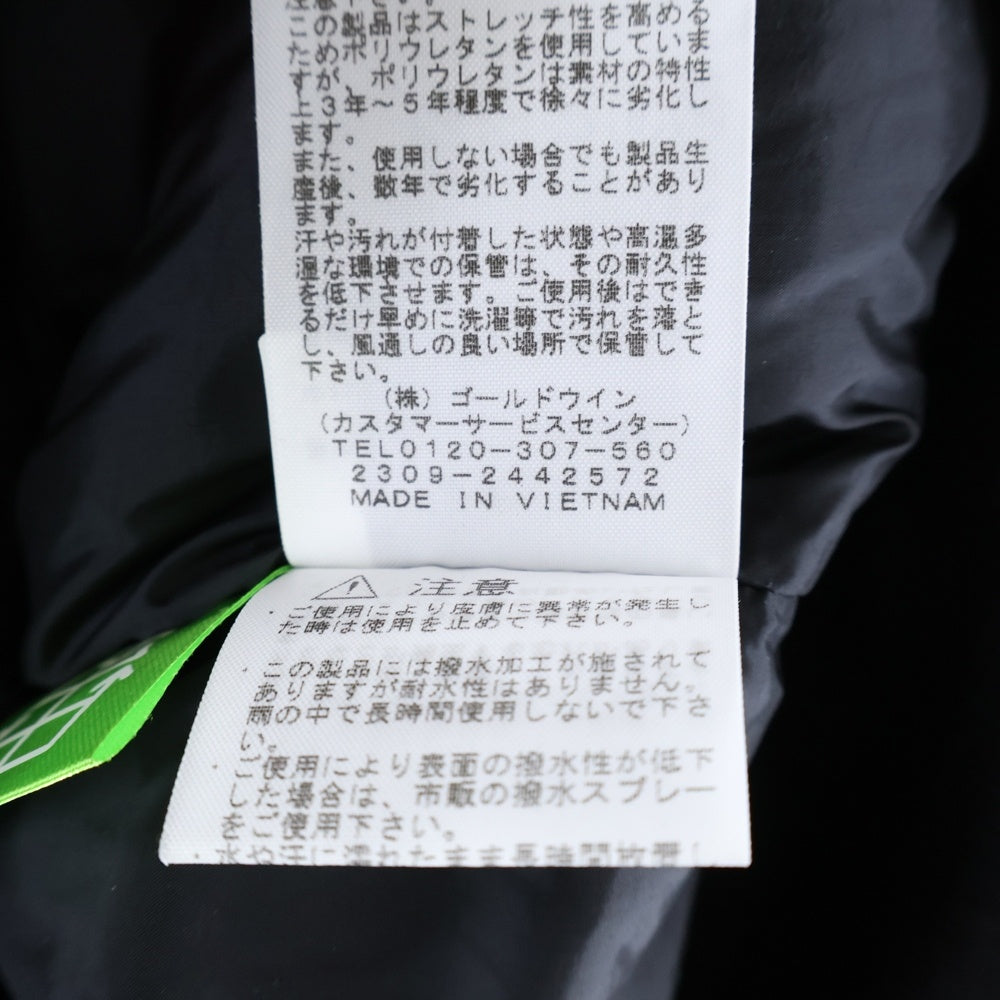 製品はストレッチ性を高める
ポリウレタンを使用していま
が、ポリウレタンは素材の特性
3年～5年程度で徐々に劣化し
ます。
また、使用しない場合でも製品生
産後、数年で劣化することがあり
ます。
汗や汚れが付着した状態や高温多
湿な環境での保管は、その耐久性
を低下させます。ご使用後はでき
るだけ早めに洗濯等で汚れを落と
し、風通しの良い場所で保管して
下さい。
(株)ゴールドウイン
(カスタマーサービスセンター)
TEL0120-307-560
2309-2442572
MADE IN VIETNAM
注意
・ご使用により皮膚に異常が発生し
た時は使用を止めて下さい。
・この製品には撥水加工が施されて
ありますが耐水性はありません。
雨の中で長時間使用しないで下さ
い。
・ご使用により表面の撥水性が低下
した場合は、市販の撥水スプレー
をご使用下さい。
・水や汗に濡れたまま長時間放置し